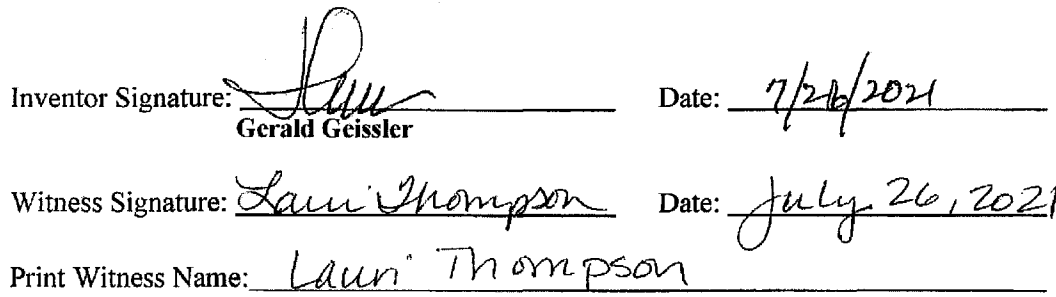 Inventor Signature: Date: 7/26/2021
Gerald Geissler
Witness Signature: Lauri Thompson Date: July 26, 2021
Print Witness Name: Lauri Thompson